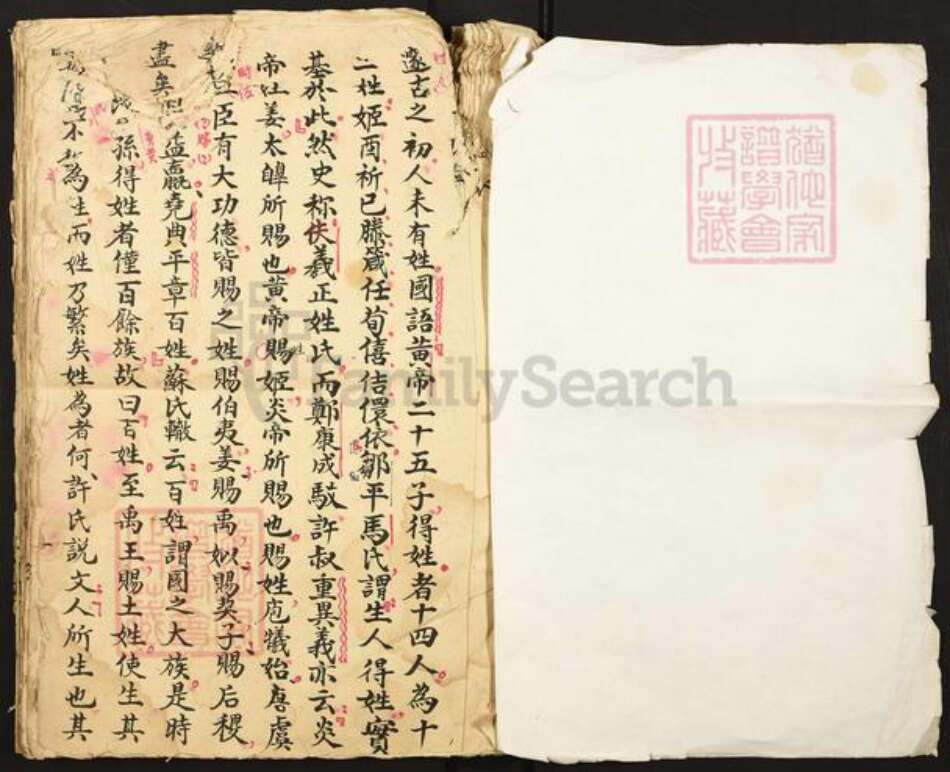 邃古之初人未有姓國語黃帝二十五子得姓者十四人為十
二姓姬酉祈已滕箴任荀僖佶儇依鄒平馬氏謂生人得姓實
基於此然史称伏義正姓氏而鄭康成駁許叔重異義亦云炎
帝姓姜太皥所賜也黃帝賜姬炎帝所賜也賜姓庖犧始唐虞
臣有大功德皆賜之姓賜伯夷姜賜禹姒賜契子賜后稷
盡矣 孟嬴堯典平章百姓蘇氏轍云百姓謂國之大族是時
孫得姓者僅百餘族故曰百姓至禹王賜土姓使生其
不 為生而姓乃繁矣姓為者何許氏說文人所生也其
譜學會
收藏
FamilySearch